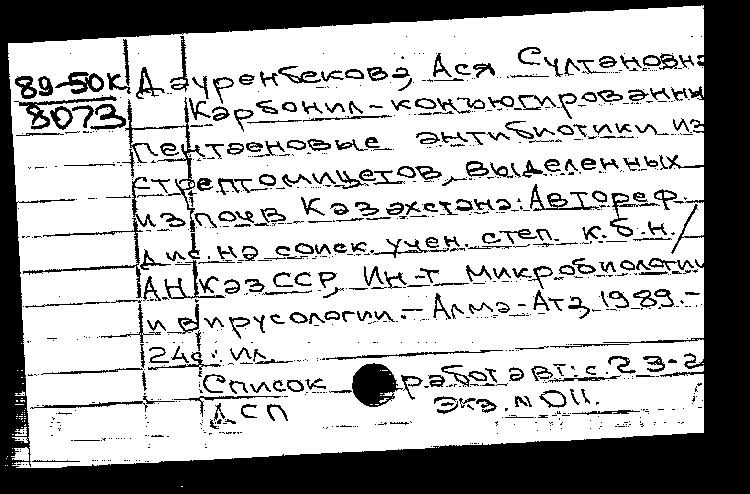 89-50к Дауренбекова, Ася Султановна
8073 Карбонил-конъюгированны
пентаеновые антибиотики из
стрептомицетов, выделенных
из почв Казахстана: Автореф.
дис. на соиск. учен. степ. к.б.н. /
АН КазССР, Ин-т микробиологии
и вирусологии. - Алма-Ата, 1989. -
24с.: ил.
Список работ авт.: с. 23-2
ДСП Экз. N 011.